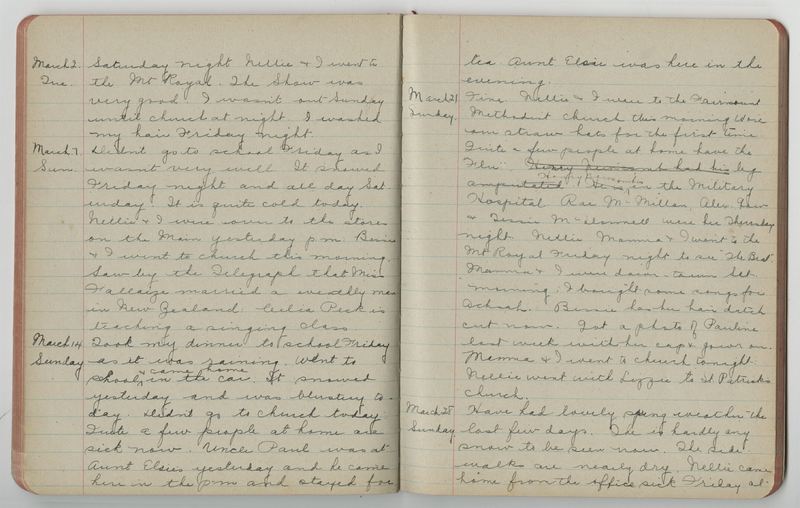 March 2. Saturday night Nellie & I went to
Tue. the Mt Royal. The Show was
very good. I wasn't out Sunday
until church at night. I washed
my hair Friday night.
March 7 Didn't go to school Friday as I
Sun. wasn't very well. It snowed
Friday night and all day Sat
urday. It is quite cold today.
Nellie & I were over to the stores
on the Main yesterday p.m. Bessie
& I went to church this morning.
Saw by the Telegraph that Miss
married a wealthy man
in New Zealand. Celia Peck is
teaching a singing class
March 14 Took my dinner to school Friday
Sunday as it was raining. Went to
& came home
school in the car. It snowed
yesterday and was blustery to-
day. Didn't go to church today.
Quite a few people at home are
sick now. Uncle Paul was at
Aunt Elsie's yesterday and he came
here in the p.m and stayed for
tea. Aunt Elsie was here in the
evening.
March 21 Fine. Nellie & I were to the Fairmount
Sunday. Methodist Church this morning. Wore
our straw hats for the first time
Quite a few people at home have the
"Flu". had his leg
Henry
amputated. He is in the Military
Hospital. Rae McMillan, Alex.
& Tessie McDonnell were here Thursday
night. Nellie Mamma & I went to the
Mt Royal Friday night to see "The Best".
Mamma & I were down-town Sat.
morning. I bought some songs for
School. Bessie has her hair
cut now. Got a photo of Pauline
last week with her cap & gown on.
Mamma & I went to church tonight.
Nellie went with Lizzie to St Patrick's
church.
March 28 Have had lovely spring weather the
Sunday last few days. There is hardly any
snow to be seen now. The side
walks are nearly dry. Nellie came
home from the office sick Friday at